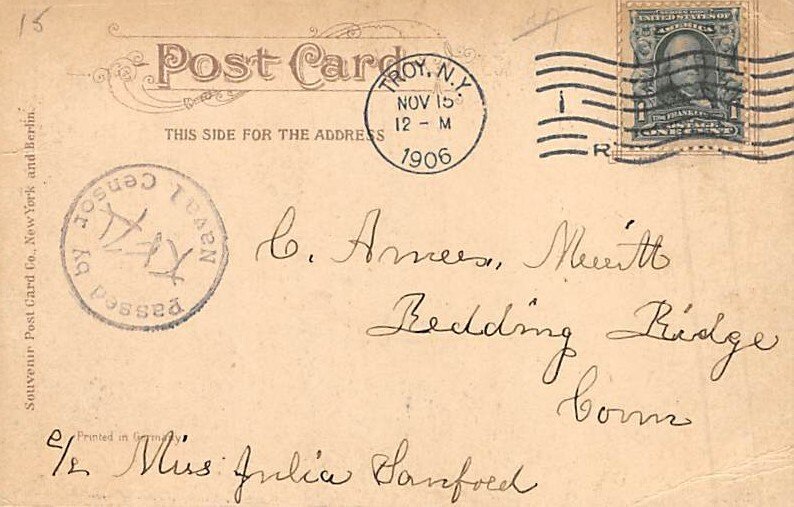 15
Post Card
THIS SIDE FOR THE ADDRESS
TROY, N.Y.
NOV 15
12 - M
1906
1
R
UNITED STATES OF
AMERICA
1 1
POSTAGE
ONE CENT
Passed by
Naval Censor
C. Amees. Merritt
Redding Ridge
Conn
c/o Miss Julia Sanford
Printed in Germany
Souvenir Post Card Co., New York and Berlin.